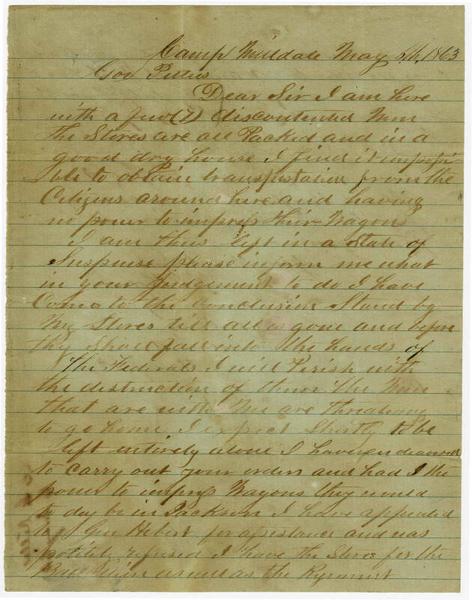 Camp Milldale May 26, 1863
Gov Pettus
Dear Sir I am here
with a few (7) discontented Men
the Stores are all Packed and in a
good dry house I find it impossi
ble to obtain transportation from the
Citizens around here and having
no power to impress their Wagons
I am thus left in a State of
Suspense please inform me what
in your judgement to do I have
Come to the conclusion Stand by
My Stores till all is gone and before
they Shall fall into the Hands of
the Federals I will Perish with
the distruction of them The Men
that are with Me are threatning
to go home I expect Shortly to be
left entirely alone I have endeavored
to carry out your orders and had I the
power to impress Wagons they would
to day be in Jackson I have appealed
to Gen Hebert for assistance and was
politely refused I have the Stores for the
as well as the Regiment